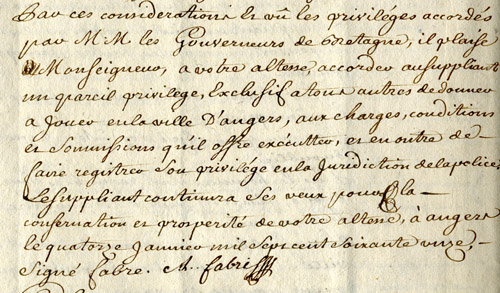 Par ces considerations Et vû les privilèges accordés
par M.M. les Gouverneurs de Bretagne, il plaise
Monseigneur, a votre altesse, accorder au supliant
un pareil privilege, Exclusif a tous autres de donner
a Jouer en la ville D'angers, aux charges, conditions
et Soumissions qu'il offre exécutter, et en outre de
faire registrer Son privilége en la Jurisdiction de la police
Le supliant continura Ses veux pour la
conservation et prosperité de votre altesse, à angers
le quatorze Janvier mil Sept cent Soixante onze,
Signé fabre.